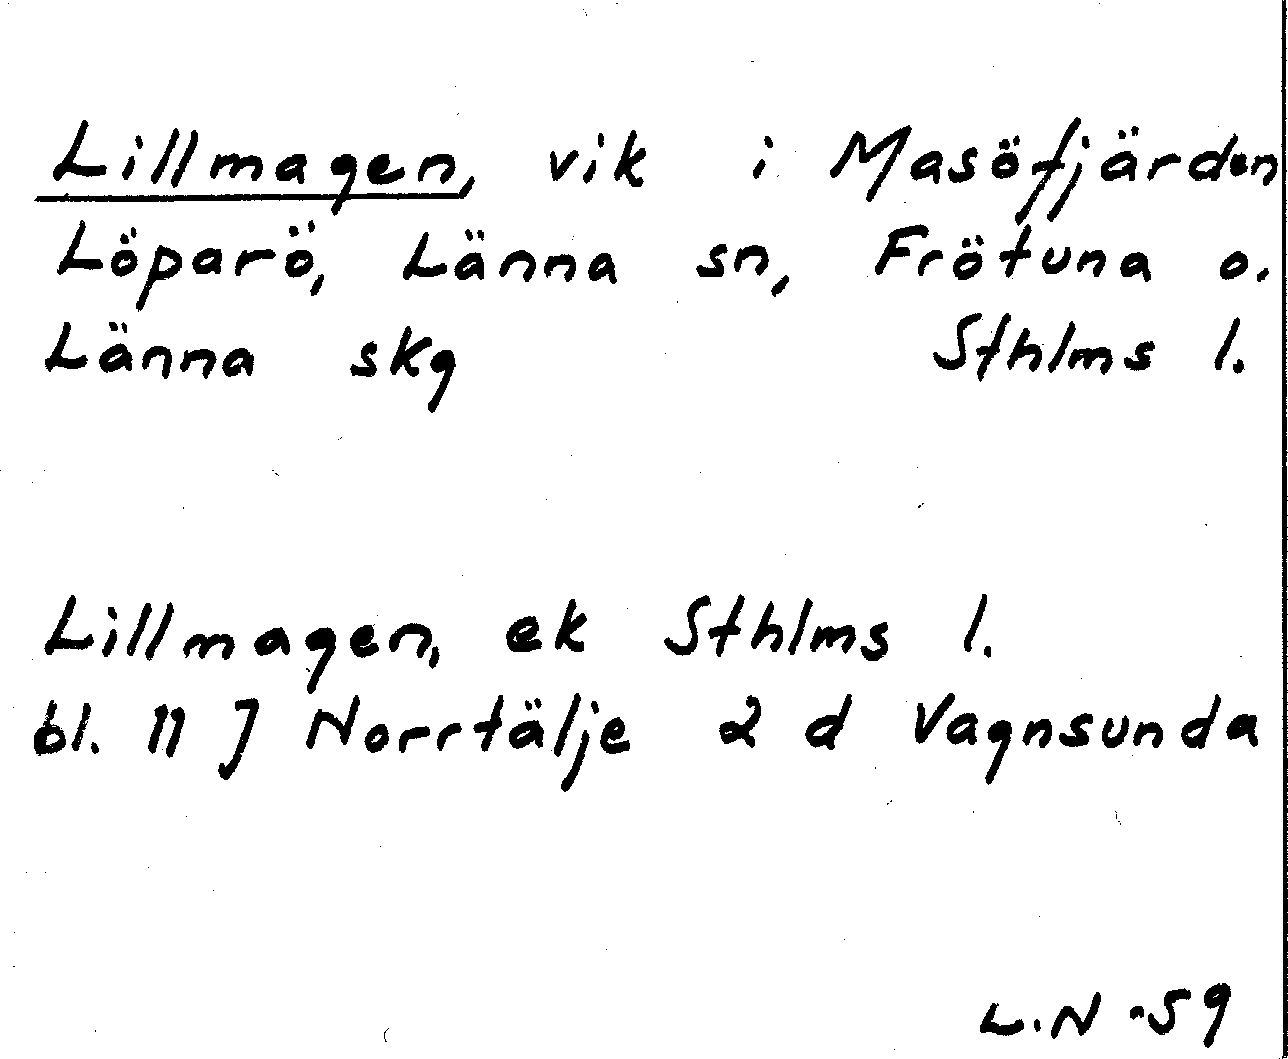 Lillmagen, vik i Masöfjärden
Löparö, Länna sn, Frötuna o.
Länna skg Sthlms l.
Lillmagen, ek Sthlms l.
bl. 11 J Norrtälje 2 d Vagnsunda
L.N -59